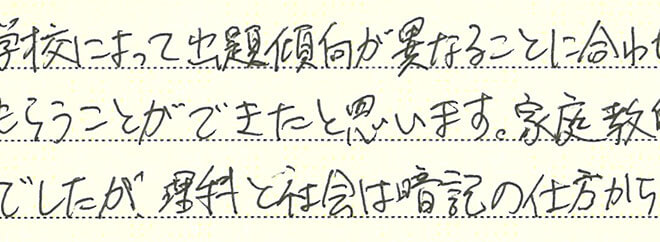 学校によって出題傾向が異なることに合わ
もらうことができたと思います。家庭教
でしたが、理科と社会は暗記の仕方から